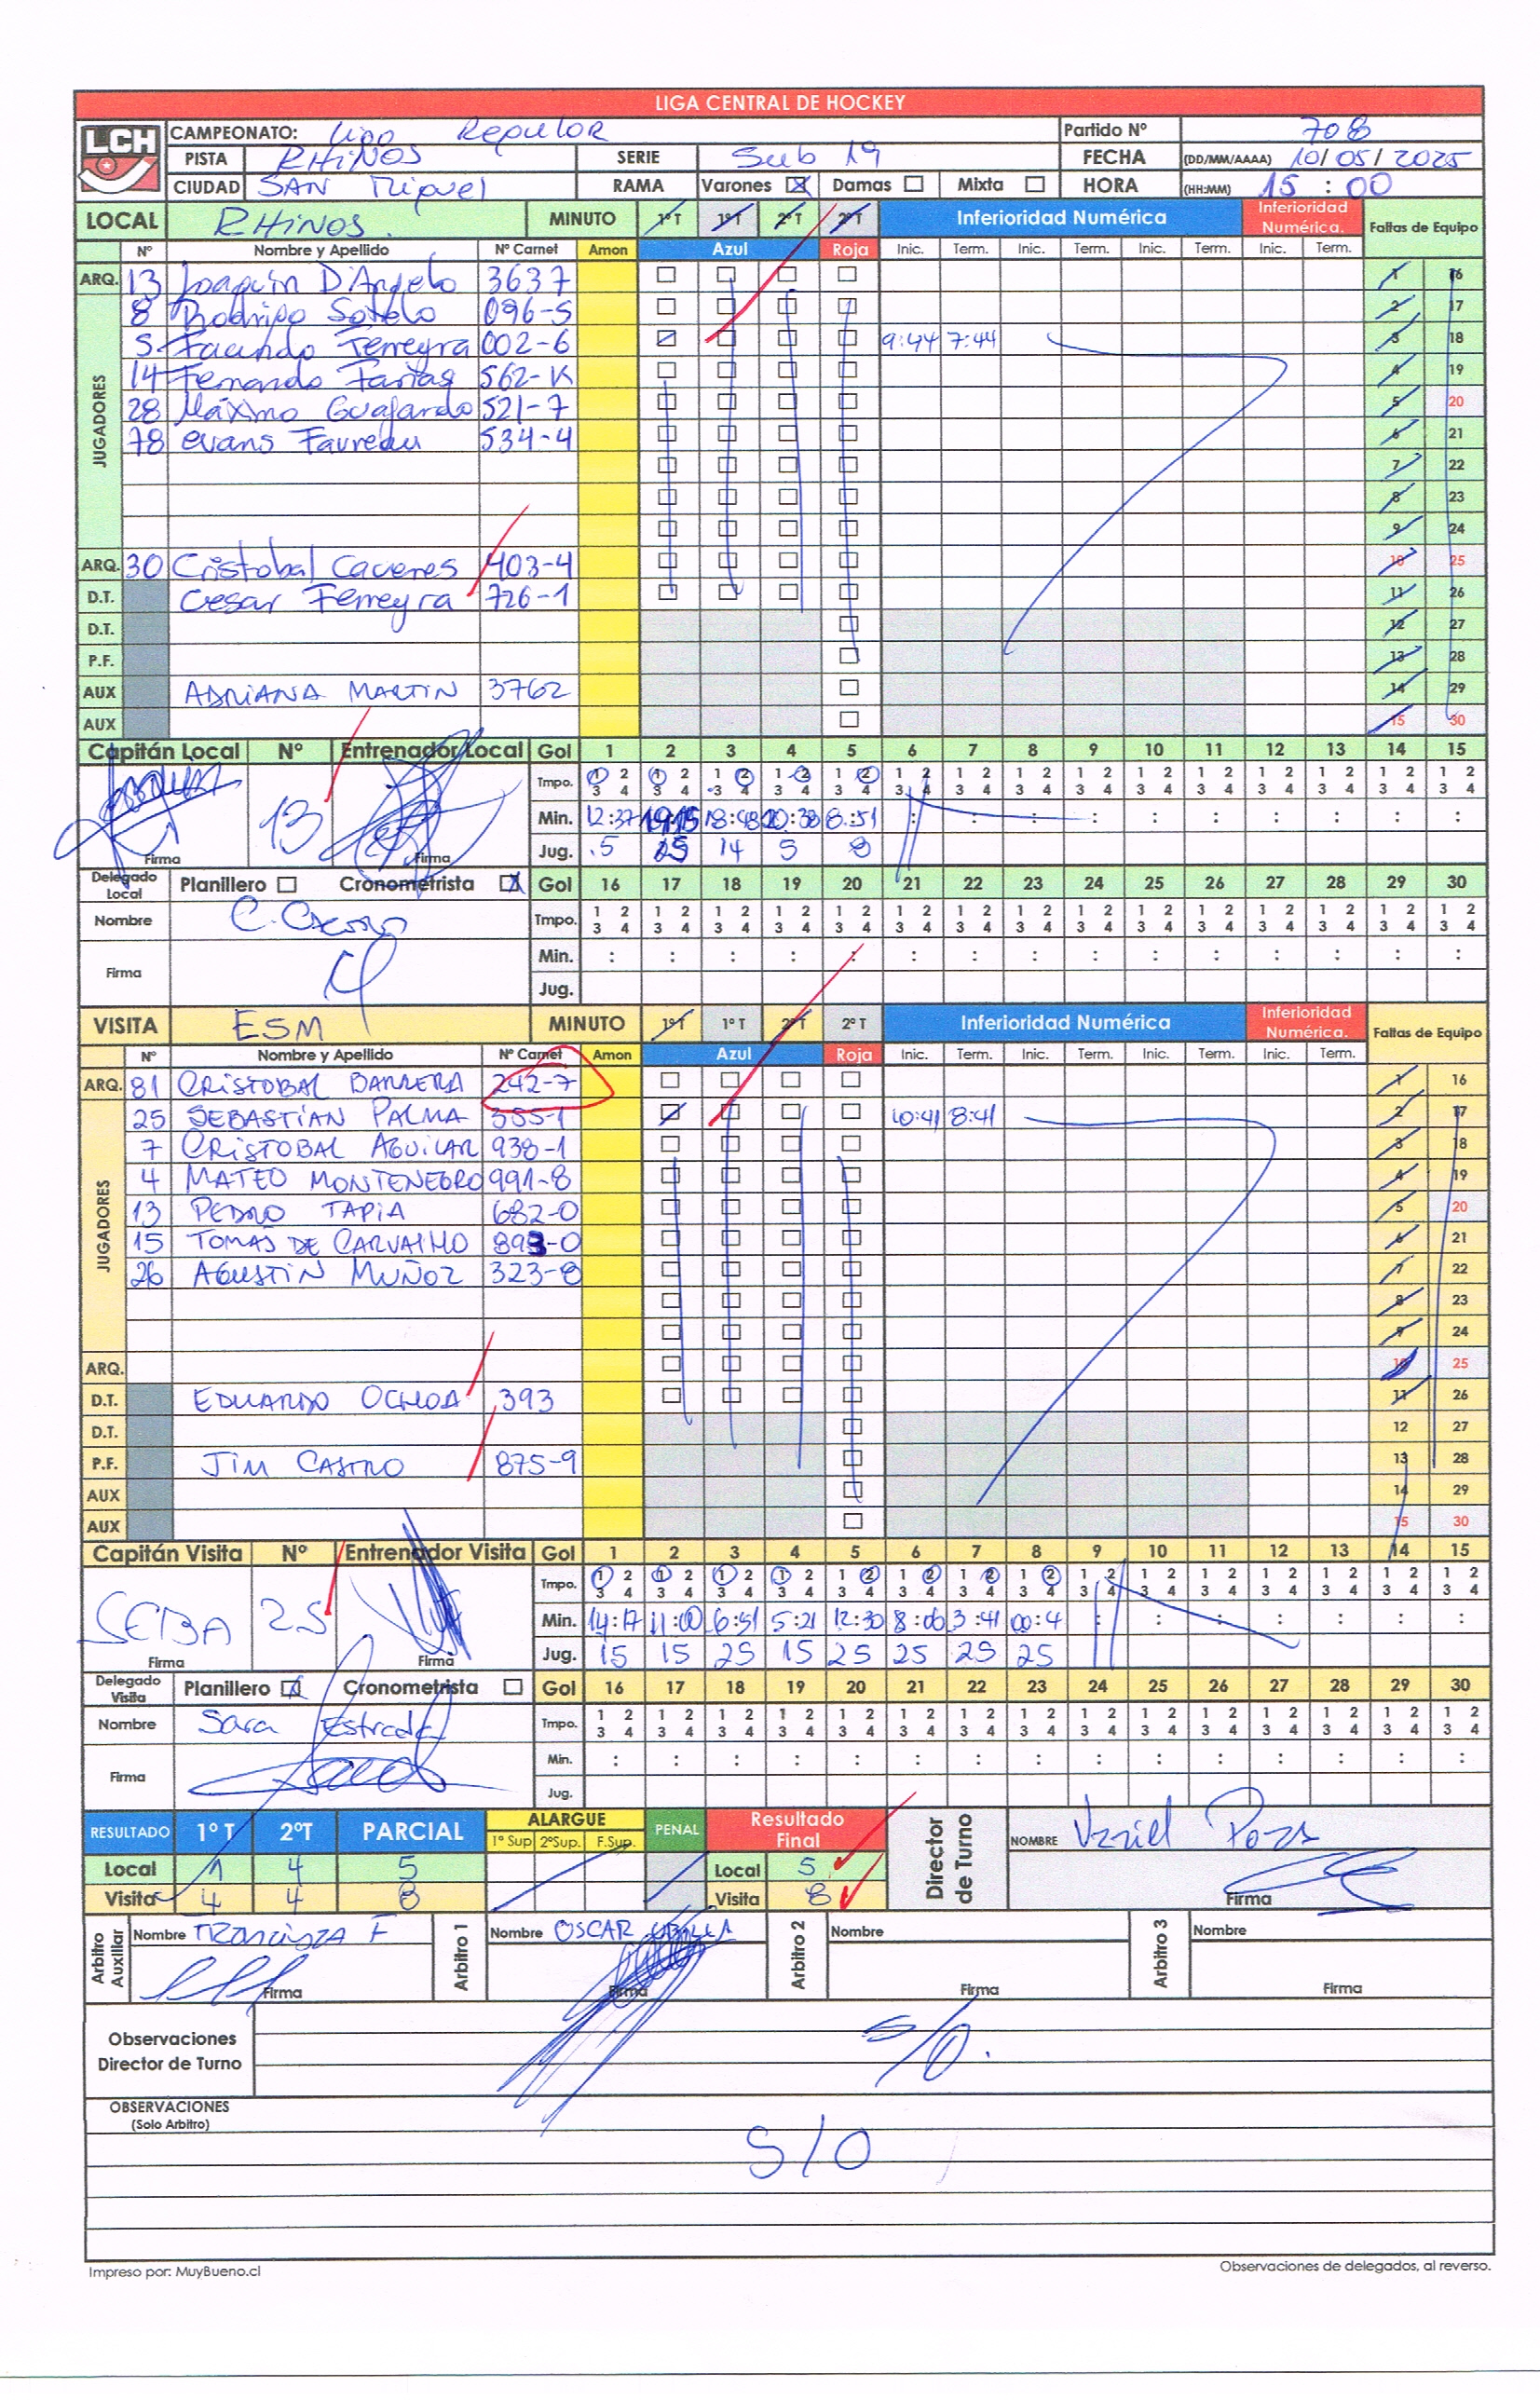 LIGA CENTRAL DE HOCKEY
LCH CAMPEONATO: Liga Regular Partido Nº 708
PISTA RHINOS SERIE Sub 19 FECHA (DD/MM/AAAA) 10/05/2025
CIUDAD SAN Miguel RAMA Varones Damas Mixta HORA (HH:MM) 15:00
LOCAL RHINOS MINUTO 1º T 1º T 2º T 2º T Inferioridad Numérica Inferioridad Numérica. Faltas de Equipo
Nº Nombre y Apellido Nº Carnet Amon Azul Roja Inic. Term. Inic. Term. Inic. Term. Inic. Term.
ARQ. 13 Joaquín D'Angelo 3637 1 16
JUGADORES
8 Rodrigo Sotelo 096-5 2 17
5 Facundo Ferreyra 002-6 9:44 7:44 3 18
14 Fernando Farias 562-K 4 19
28 Máximo Guajardo 521-7 5 20
78 evans Favreau 534-4 6 21
7 22
8 23
9 24
ARQ. 30 Cristobal Caceres 403-4 10 25
D.T. Cesar Ferreyra 726-1 11 26
D.T. 12 27
P.F. 13 28
AUX ADRIANA MARTIN 3762 14 29
AUX 15 30
Capitán Local Nº Entrenador Local Gol 1 2 3 4 5 6 7 8 9 10 11 12 13 14 15
Tmpo. 1 2 1 2 1 2 1 2 1 2 1 2 1 2 1 2 1 2 1 2 1 2 1 2 1 2 1 2 1 2
3 4 3 4 3 4 3 4 3 4 3 4 3 4 3 4 3 4 3 4 3 4 3 4 3 4 3 4 3 4
13 Min. 12:37 18:48 8:51 : : : : : : : : : :
Firma Firma Jug. 5 14 5 8
Delegado Local Planillero Cronometrista Gol 16 17 18 19 20 21 22 23 24 25 26 27 28 29 30
Nombre Tmpo. 1 2 1 2 1 2 1 2 1 2 1 2 1 2 1 2 1 2 1 2 1 2 1 2 1 2 1 2 1 2
3 4 3 4 3 4 3 4 3 4 3 4 3 4 3 4 3 4 3 4 3 4 3 4 3 4 3 4 3 4
Firma Min. : : : : : : : : : : : : : : :
Jug.
VISITA ESM MINUTO 1º T 1º T 2º T 2º T Inferioridad Numérica Inferioridad Numérica. Faltas de Equipo
Nº Nombre y Apellido Nº Carnet Amon Azul Roja Inic. Term. Inic. Term. Inic. Term. Inic. Term.
ARQ. 81 CRISTOBAL BARRERA 242-7 1 16
JUGADORES
25 SEBASTIAN PALMA 355-1 10:41 8:41 2 17
7 CRISTOBAL AGUILAR 938-1 3 18
4 MATEO MONTENEGRO 991-8 4 19
13 PEDRO TAPIA 682-0 5 20
15 TOMAS DE CARVALHO 893-0 6 21
26 AGUSTIN MUÑOZ 323-8 7 22
8 23
9 24
ARQ. 10 25
D.T. EDUARDO OCHOA 393 11 26
D.T. 12 27
P.F. JIM CASTRO 875-9 13 28
AUX 14 29
AUX 15 30
Capitán Visita Nº Entrenador Visita Gol 1 2 3 4 5 6 7 8 9 10 11 12 13 14 15
Tmpo. 1 2 1 2 1 2 1 2 1 2 1 2 1 2 1 2 1 2 1 2 1 2 1 2 1 2 1 2 1 2
3 4 3 4 3 4 3 4 3 4 3 4 3 4 3 4 3 4 3 4 3 4 3 4 3 4 3 4 3 4
SEBA 25 Min. 14:17 11:00 6:51 5:21 12:30 8:06 3:41 00:4 : : : : : : :
Firma Firma Jug. 15 15 25 15 25 25 25 25
Delegado Visita Planillero Cronometrista Gol 16 17 18 19 20 21 22 23 24 25 26 27 28 29 30
Nombre Sara Estrada Tmpo. 1 2 1 2 1 2 1 2 1 2 1 2 1 2 1 2 1 2 1 2 1 2 1 2 1 2 1 2 1 2
3 4 3 4 3 4 3 4 3 4 3 4 3 4 3 4 3 4 3 4 3 4 3 4 3 4 3 4 3 4
Firma Min. : : : : : : : : : : : : : : :
Jug.
RESULTADO 1º T 2ºT PARCIAL ALARGUE 1º Sup 2ºSup. F.Sup. PENAL Resultado Final Director de Turno NOMBRE
Local 1 4 5 Local 5
Visita 4 4 8 Visita 8 Firma
Arbitro Auxiliar Nombre Francisca F Arbitro 1 Nombre OSCAR Arbitro 2 Nombre Arbitro 3 Nombre
Firma Firma Firma Firma
Observaciones Director de Turno S/O.
OBSERVACIONES
(Solo Arbitro)
S/O
Impreso por: MuyBueno.cl Observaciones de delegados, al reverso.